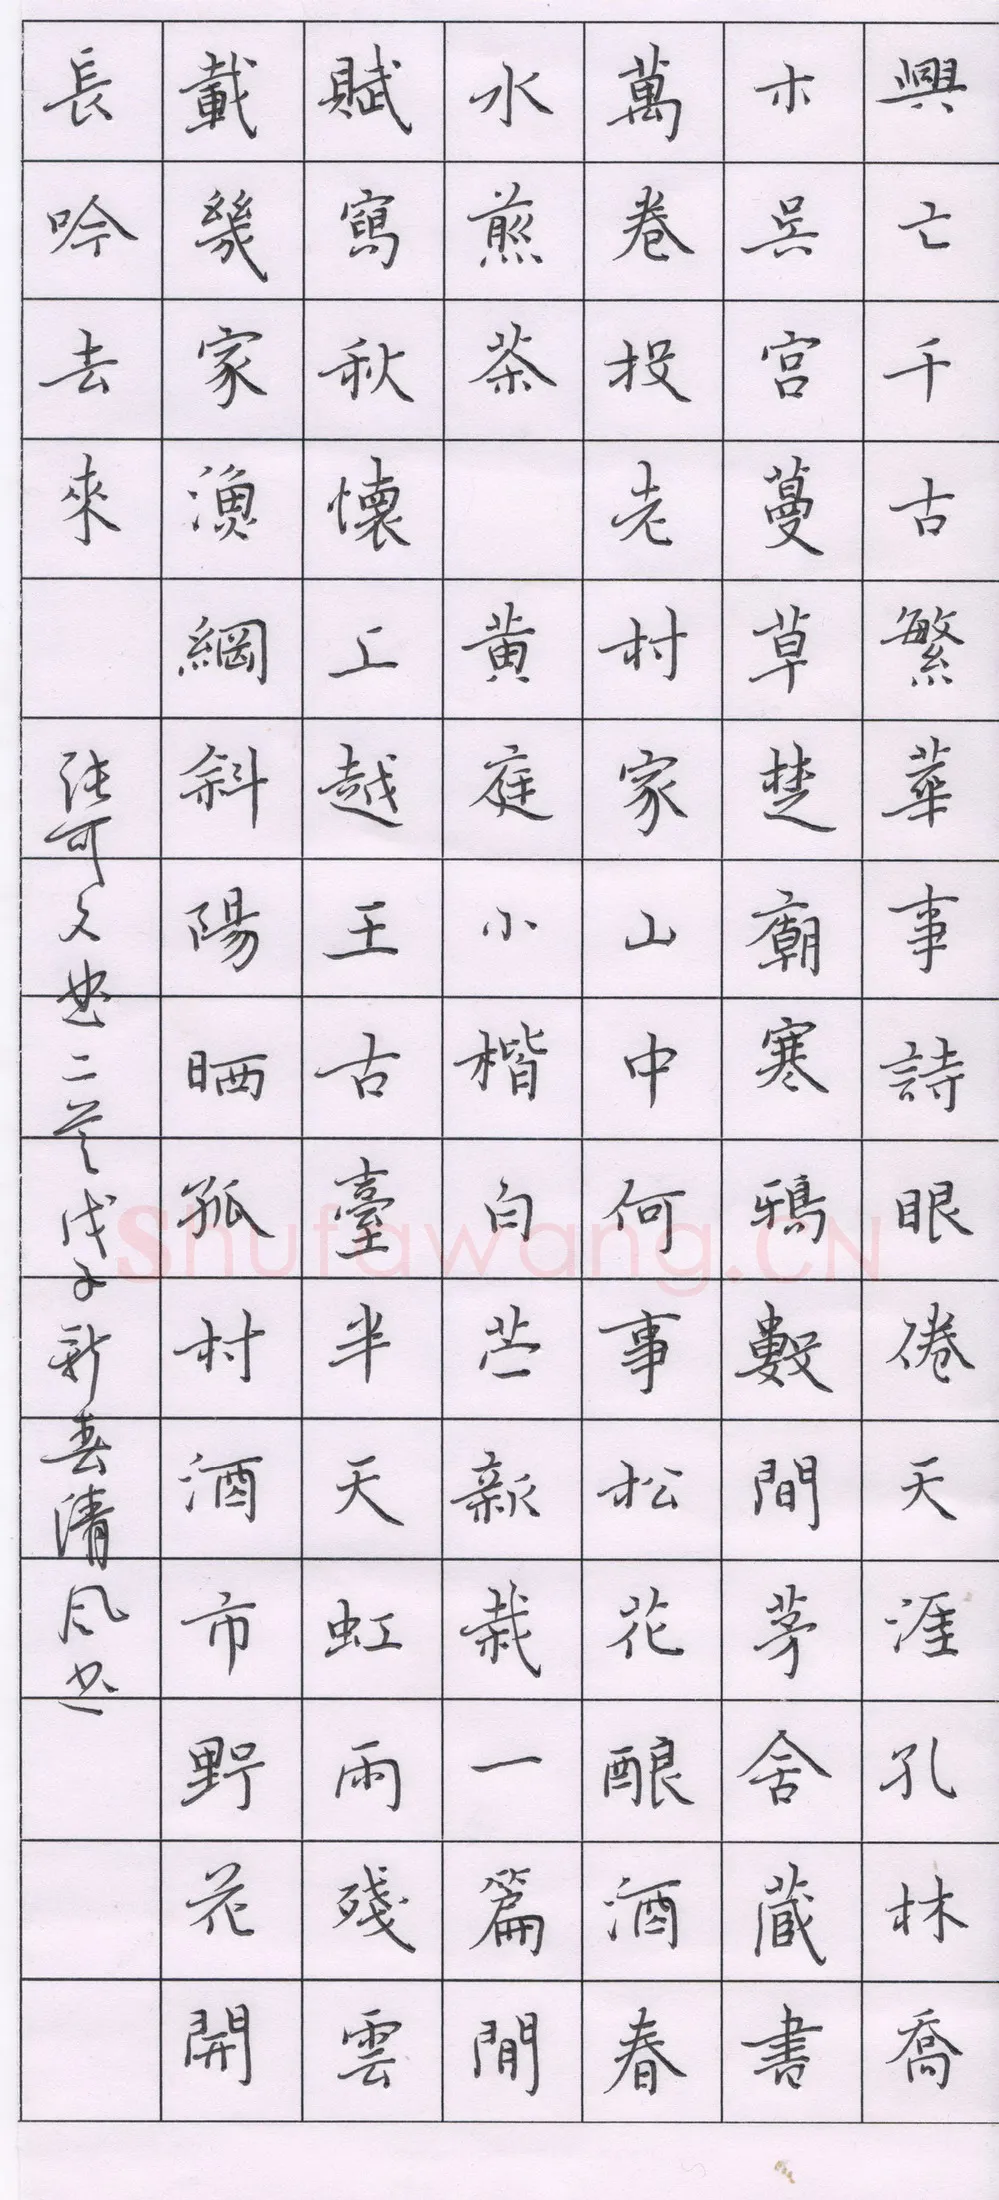 興亡千古繁華事詩眼倦天涯孔林喬
木吳宮蔓草楚廟寒鴉數間茅舍藏書
萬卷投老村家山中何事松花釀酒春
水煎茶 黃庭小楷白芒新栽一篇閒
賦寫秋懷上越王古臺半天虹雨殘雲
載幾家漁網斜陽晒孤村酒市野花開
長吟去來
張可久曲二首戊子新春清風書
Shufawang.CN